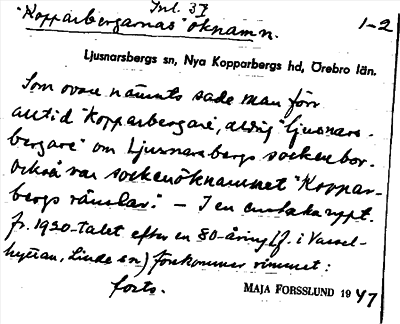 Inl. 37
"Kopparbergarnas" öknamn. 1-2
Ljusnarsbergs sn, Nya Kopparbergs hd, Örebro län.
Som ovan nämnts sade man förr
alltid "kopparbergare", aldrig "ljusnars-
bergare" om Ljusnarsbergs sockenbor.
Också var sockenöknamnet "Koppar-
bergs ränslar." – I en enstaka uppt.
fr. 1920-talet efter en 80-åring (f. i Vassel-
hyttan, Linde sn) förekommer rimmet:
forts. MAJA FORSSLUND 1947